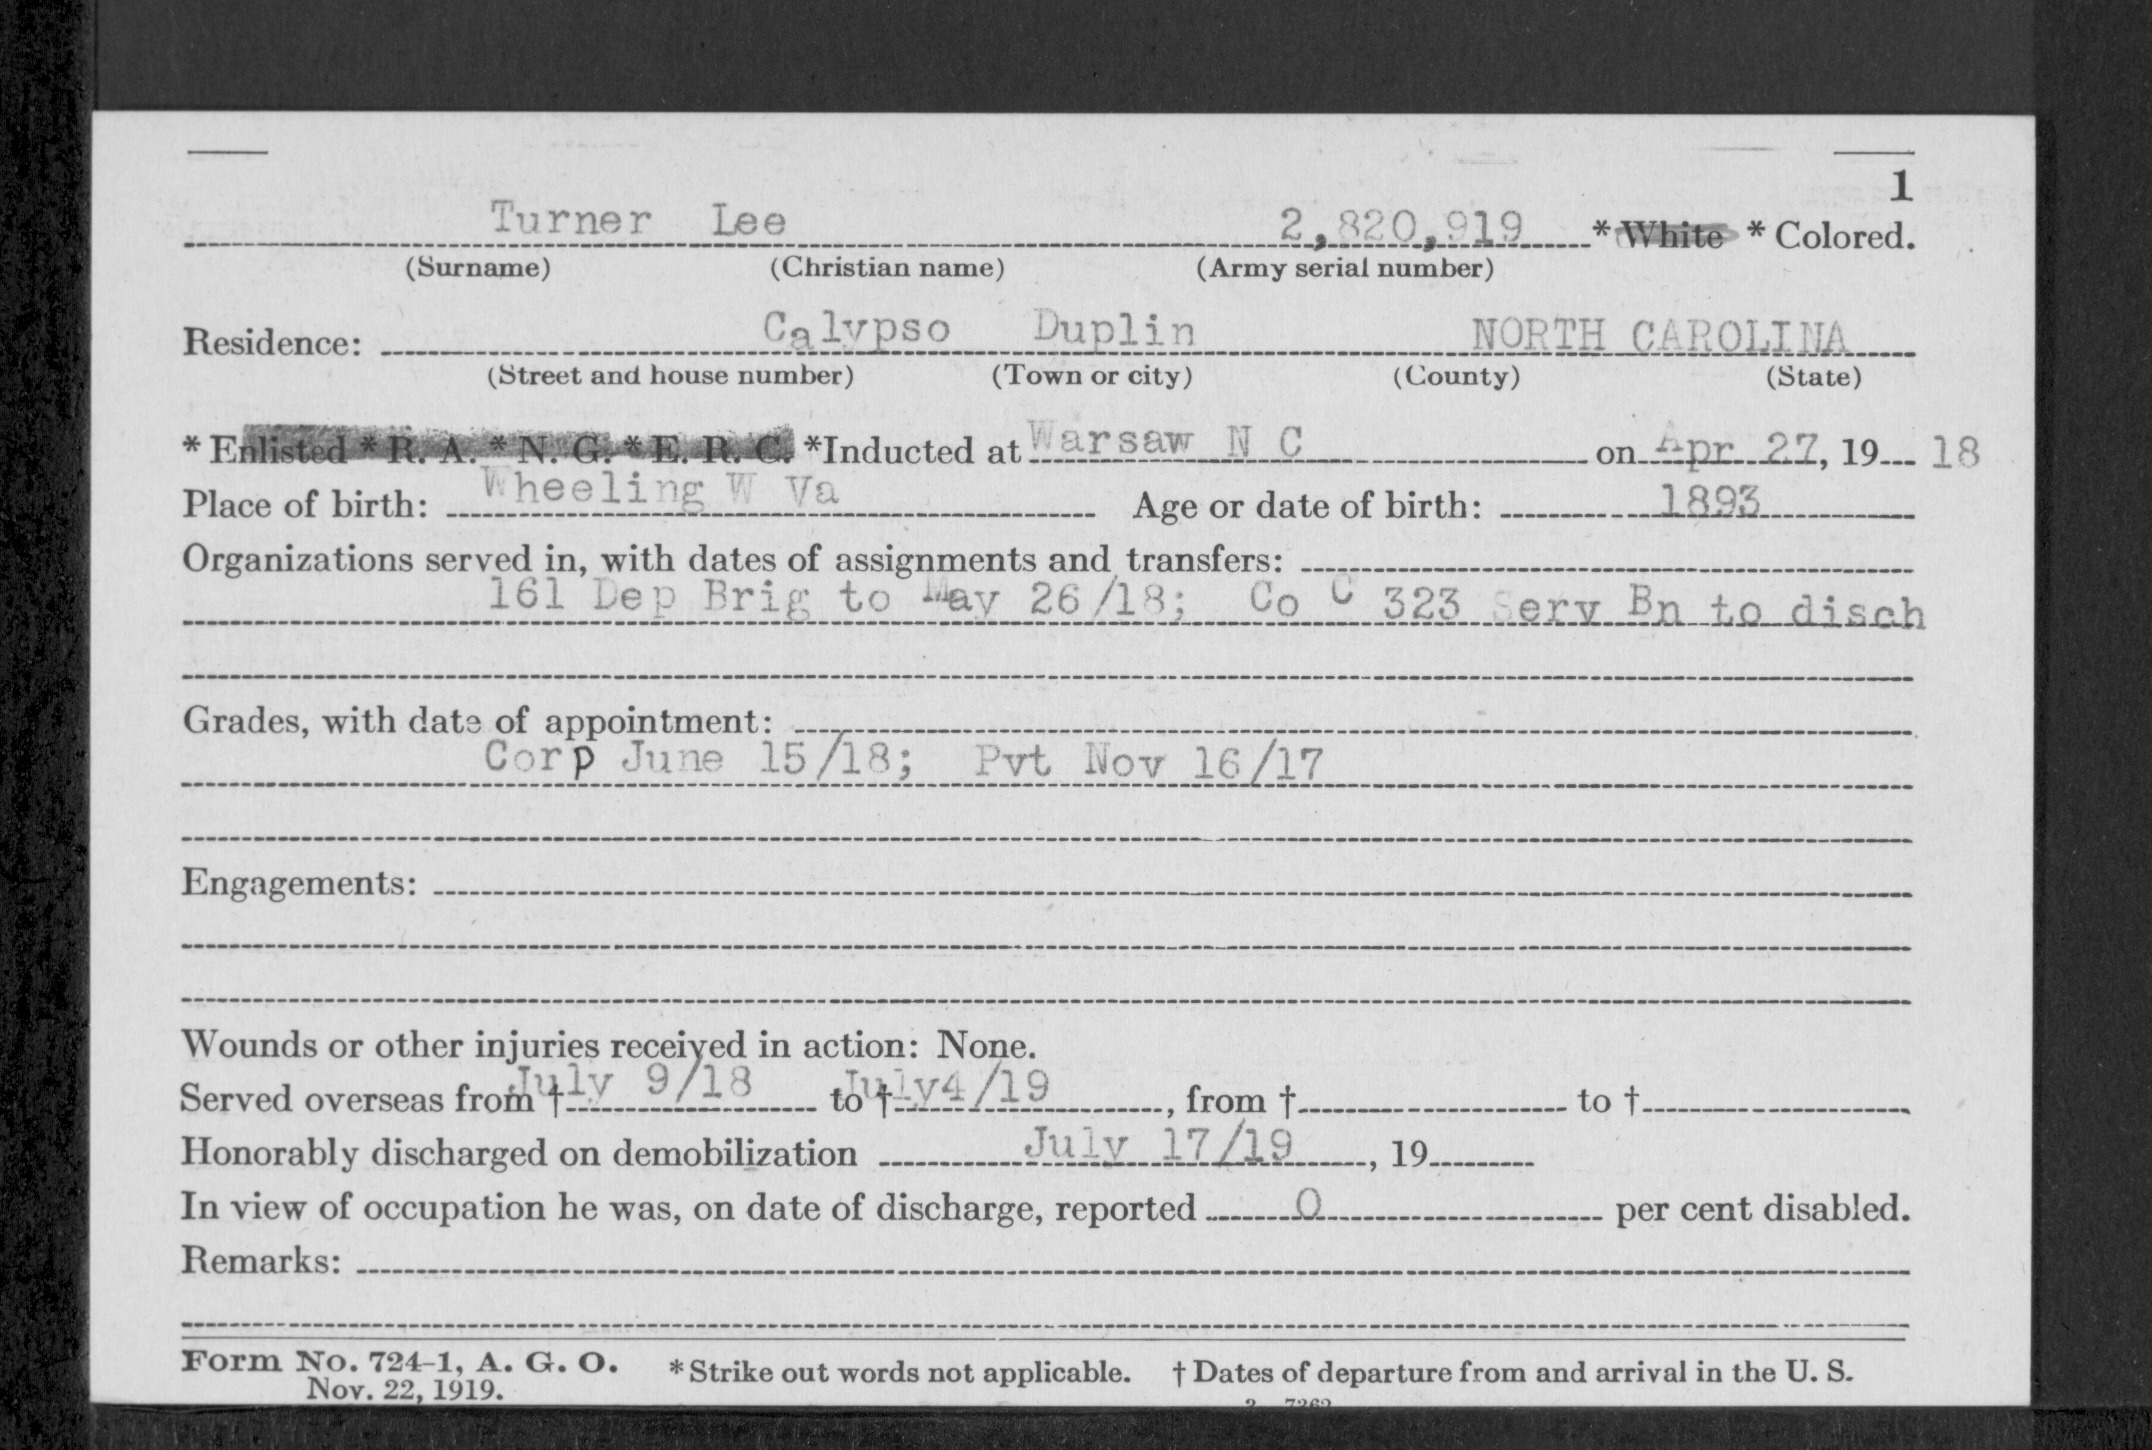 1
Turner Lee 2,820,919 * White * Colored.
(Surname) (Christian name) (Army serial number)
Residence: Calypso Duplin NORTH CAROLINA
(Street and house number) (Town or city) (County) (State)
* Enlisted * R. A. * N. G. * E. R. C. *Inducted at Warsaw N C on Apr 27, 19 18
Place of birth: Wheeling W Va Age or date of birth: 1893
Organizations served in, with dates of assignments and transfers:
161 Dep Brig to May 26/18; Co C 323 Serv Bn to disch
Grades, with date of appointment:
Corp June 15/18; Pvt Nov 16/17
Engagements:
Wounds or other injuries received in action: None.
Served overseas from † July 9/18 to † July4/19, from † to †
Honorably discharged on demobilization July 17/19, 19
In view of occupation he was, on date of discharge, reported 0 per cent disabled.
Remarks:
Form No. 724-1, A. G. O. * Strike out words not applicable. † Dates of departure from and arrival in the U. S.
Nov. 22, 1919.